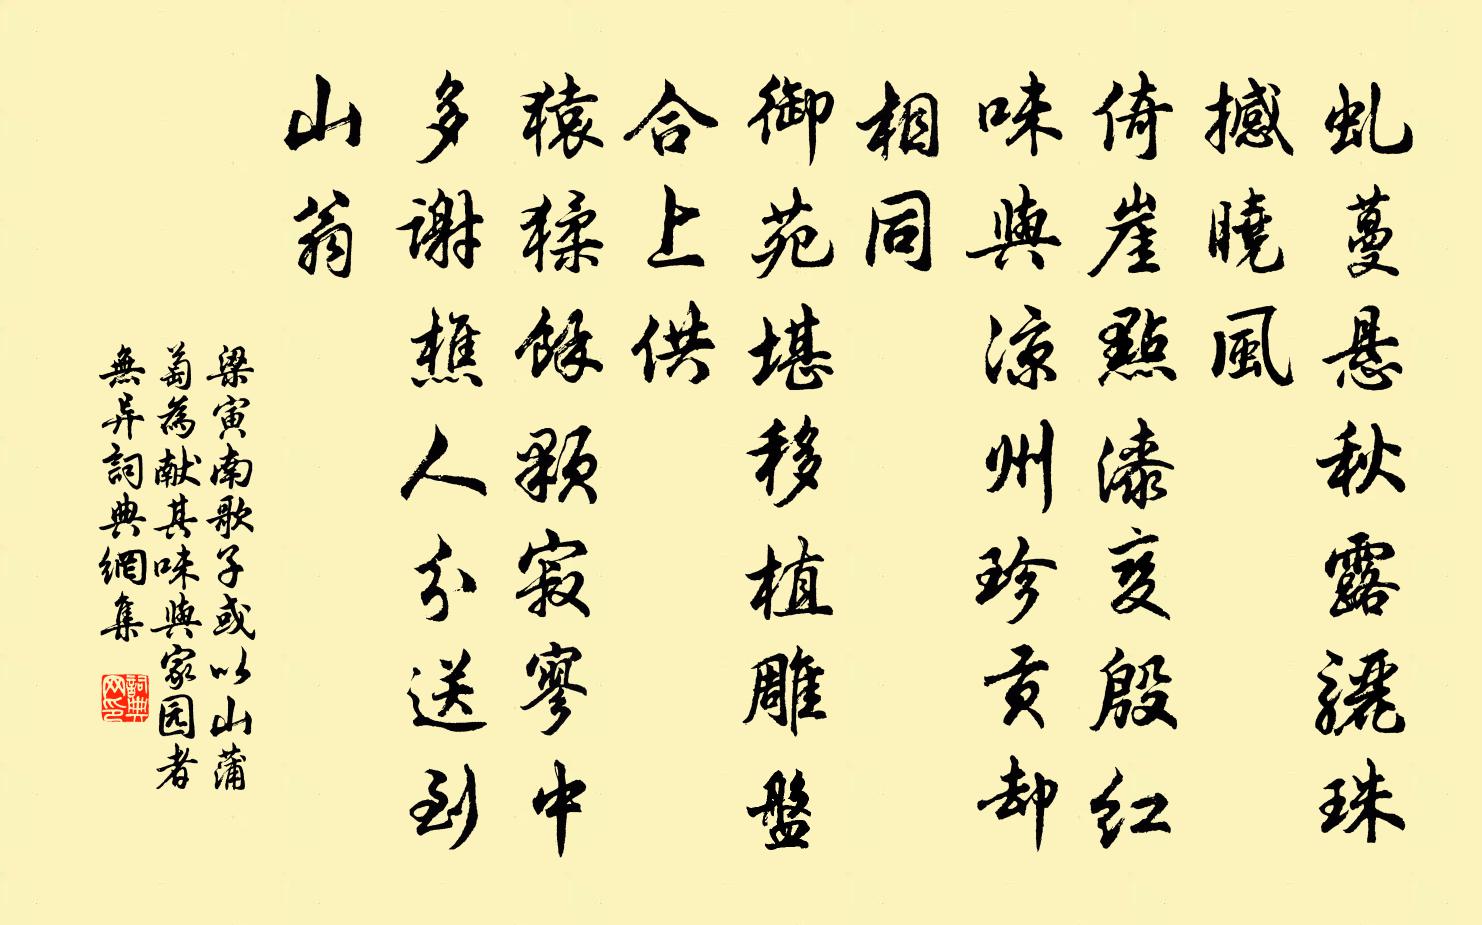 虬蔓悬秋露骊珠
撼曉風
倚崖點漆变殷红
味與凉州珍贡却
相同
御苑堪移植雕盤
合上供
猿猱餘顆寂寥中
多谢樵人分送到
山翁
梁寅南歌子或以山蒲
萄為献其味與家园者
無异詞典網集
詞典网印